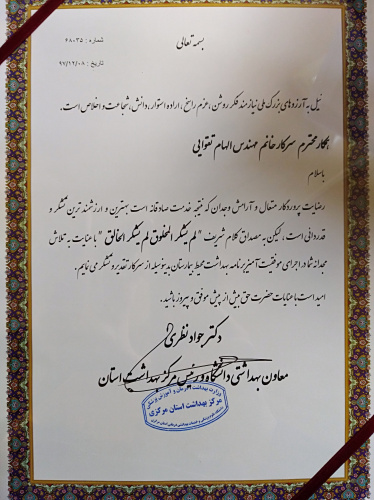 بسمه تعالی
شماره : ۶۸۰۳۵
تاریخ : ۹۷/۱۲/۰۸
نیل به آرزوهای بزرگ ملی نیازمند فکر روشن، عزم راسخ، اراده استوار، دانش، شجاعت و اخلاص است.
همکار محترم سرکار خانم مهندس الهام تقوایی
با سلام
رضایت پروردگار متعال و آرامش وجدان که نتیجه خدمت صادقانه است بهترین و ارزشمندترین تشکر و
قدردانی است ، لیکن به مصداق کلام شریف "لم یشکر المخلوق لم یشکر الخالق" با عنایت به تلاش
مجدانه شما در اجرای موفقیت آمیز برنامه بهداشت محیط بیمارستان بدینوسیله از سرکار تقدیر و تشکر می نمایم.
امید است با عنایات حضرت حق بیش از پیش موفق و پیروز باشید.
دکتر جواد نظری
معاون بهداشتی دانشگاه و رئیس مرکز بهداشت استان
وزارت بهداشت درمان و آموزش پزشکی
مرکز بهداشت استان مرکزی